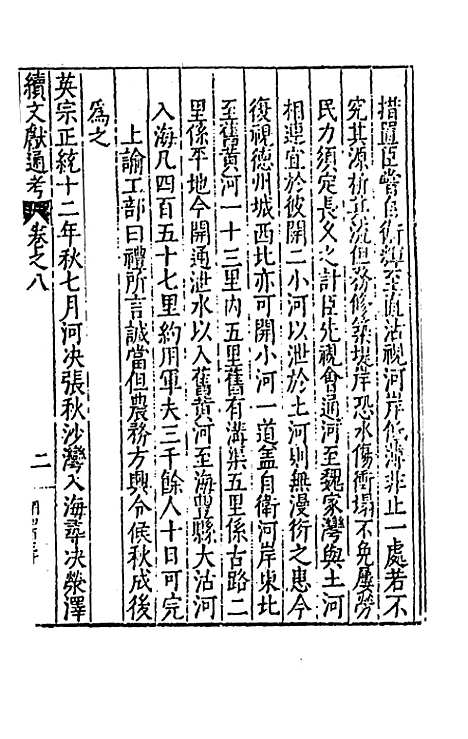 措置臣嘗自衛輝至直沽視河岸低薄非止一處若不
究其源析其流但務修築堤岸恐水傷衝塌不免屢勞
民力須定長久之計臣先視會通河至魏家灣與土河
相連宜於彼開二小河以泄於土河則無漫衍之患今
復視德州城西北亦可開小河一道蓋自衛河岸東北
至舊黃河一十三里內五里舊有溝渠五里係古路二
里係平地今開通泄水以入舊黃河至海豐縣大沽河
入海凡四百五十七里約用軍夫三千餘人十日可完
上諭工部曰禮所言誠當但農務方興令候秋成後
為之
英宗正統十二年秋七月河决張秋沙灣入海尋决滎澤
續文獻通考
卷之八
二